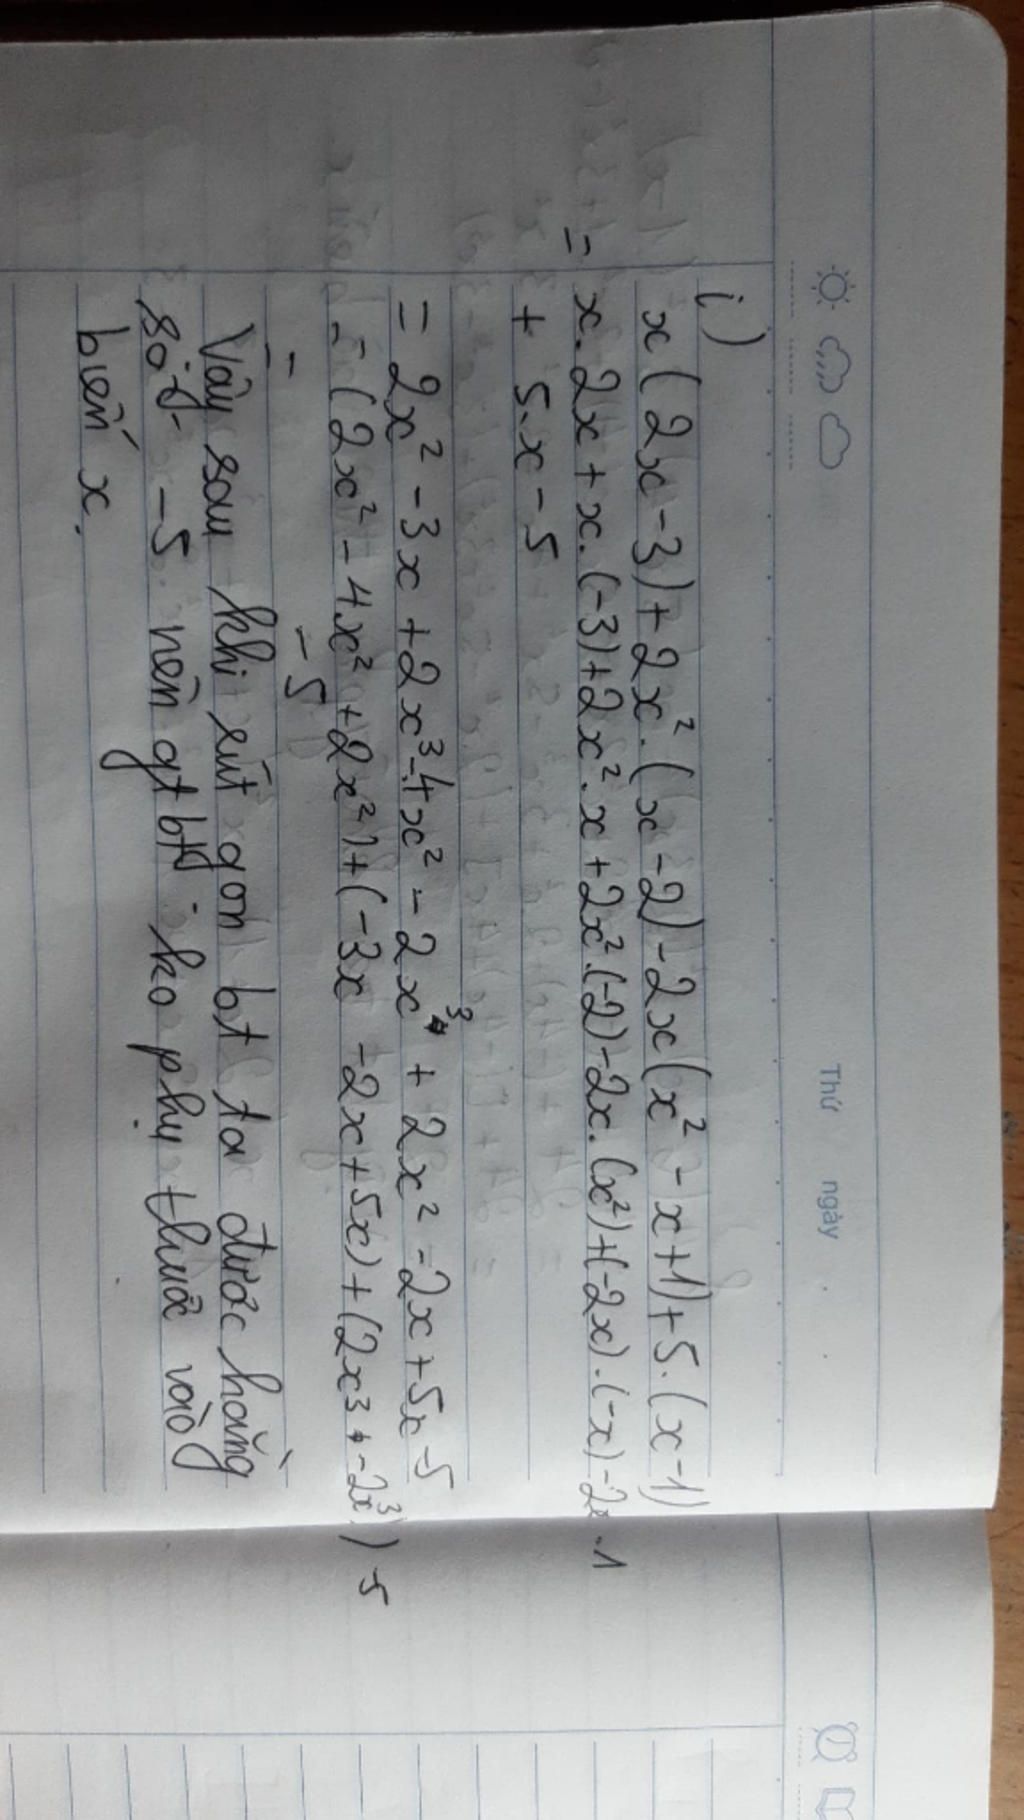 Thứ ngày
i)
x(2x-3)+2x².(x-2)-2x(x²-x+1)+5.(x-1)
= x.2x+x.(-3)+2x².x+2x².(-2)-2x.(x²)+(-2x).(-x)-2x.1
+ 5.x-5
= 2x²-3x+2x³-4x²-2x³+2x²-2x+5x-5
= (2x²-4x²+2x²)+(-3x-2x+5x)+(2x³+-2x³)-5
= -5
Vậy sau khi rút gọn bt ta được hằng
số -5 nên gt bt ko phụ thuộc vào
biến x.